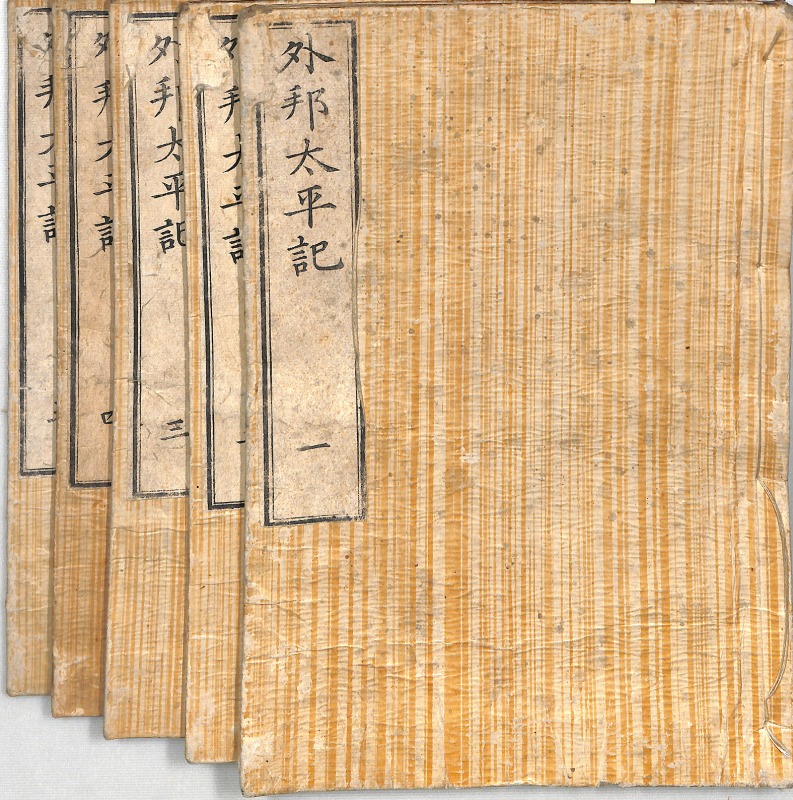 外邦太平記 一
外邦太平記
外邦太平記 三
外邦太平記 四
外邦太平記